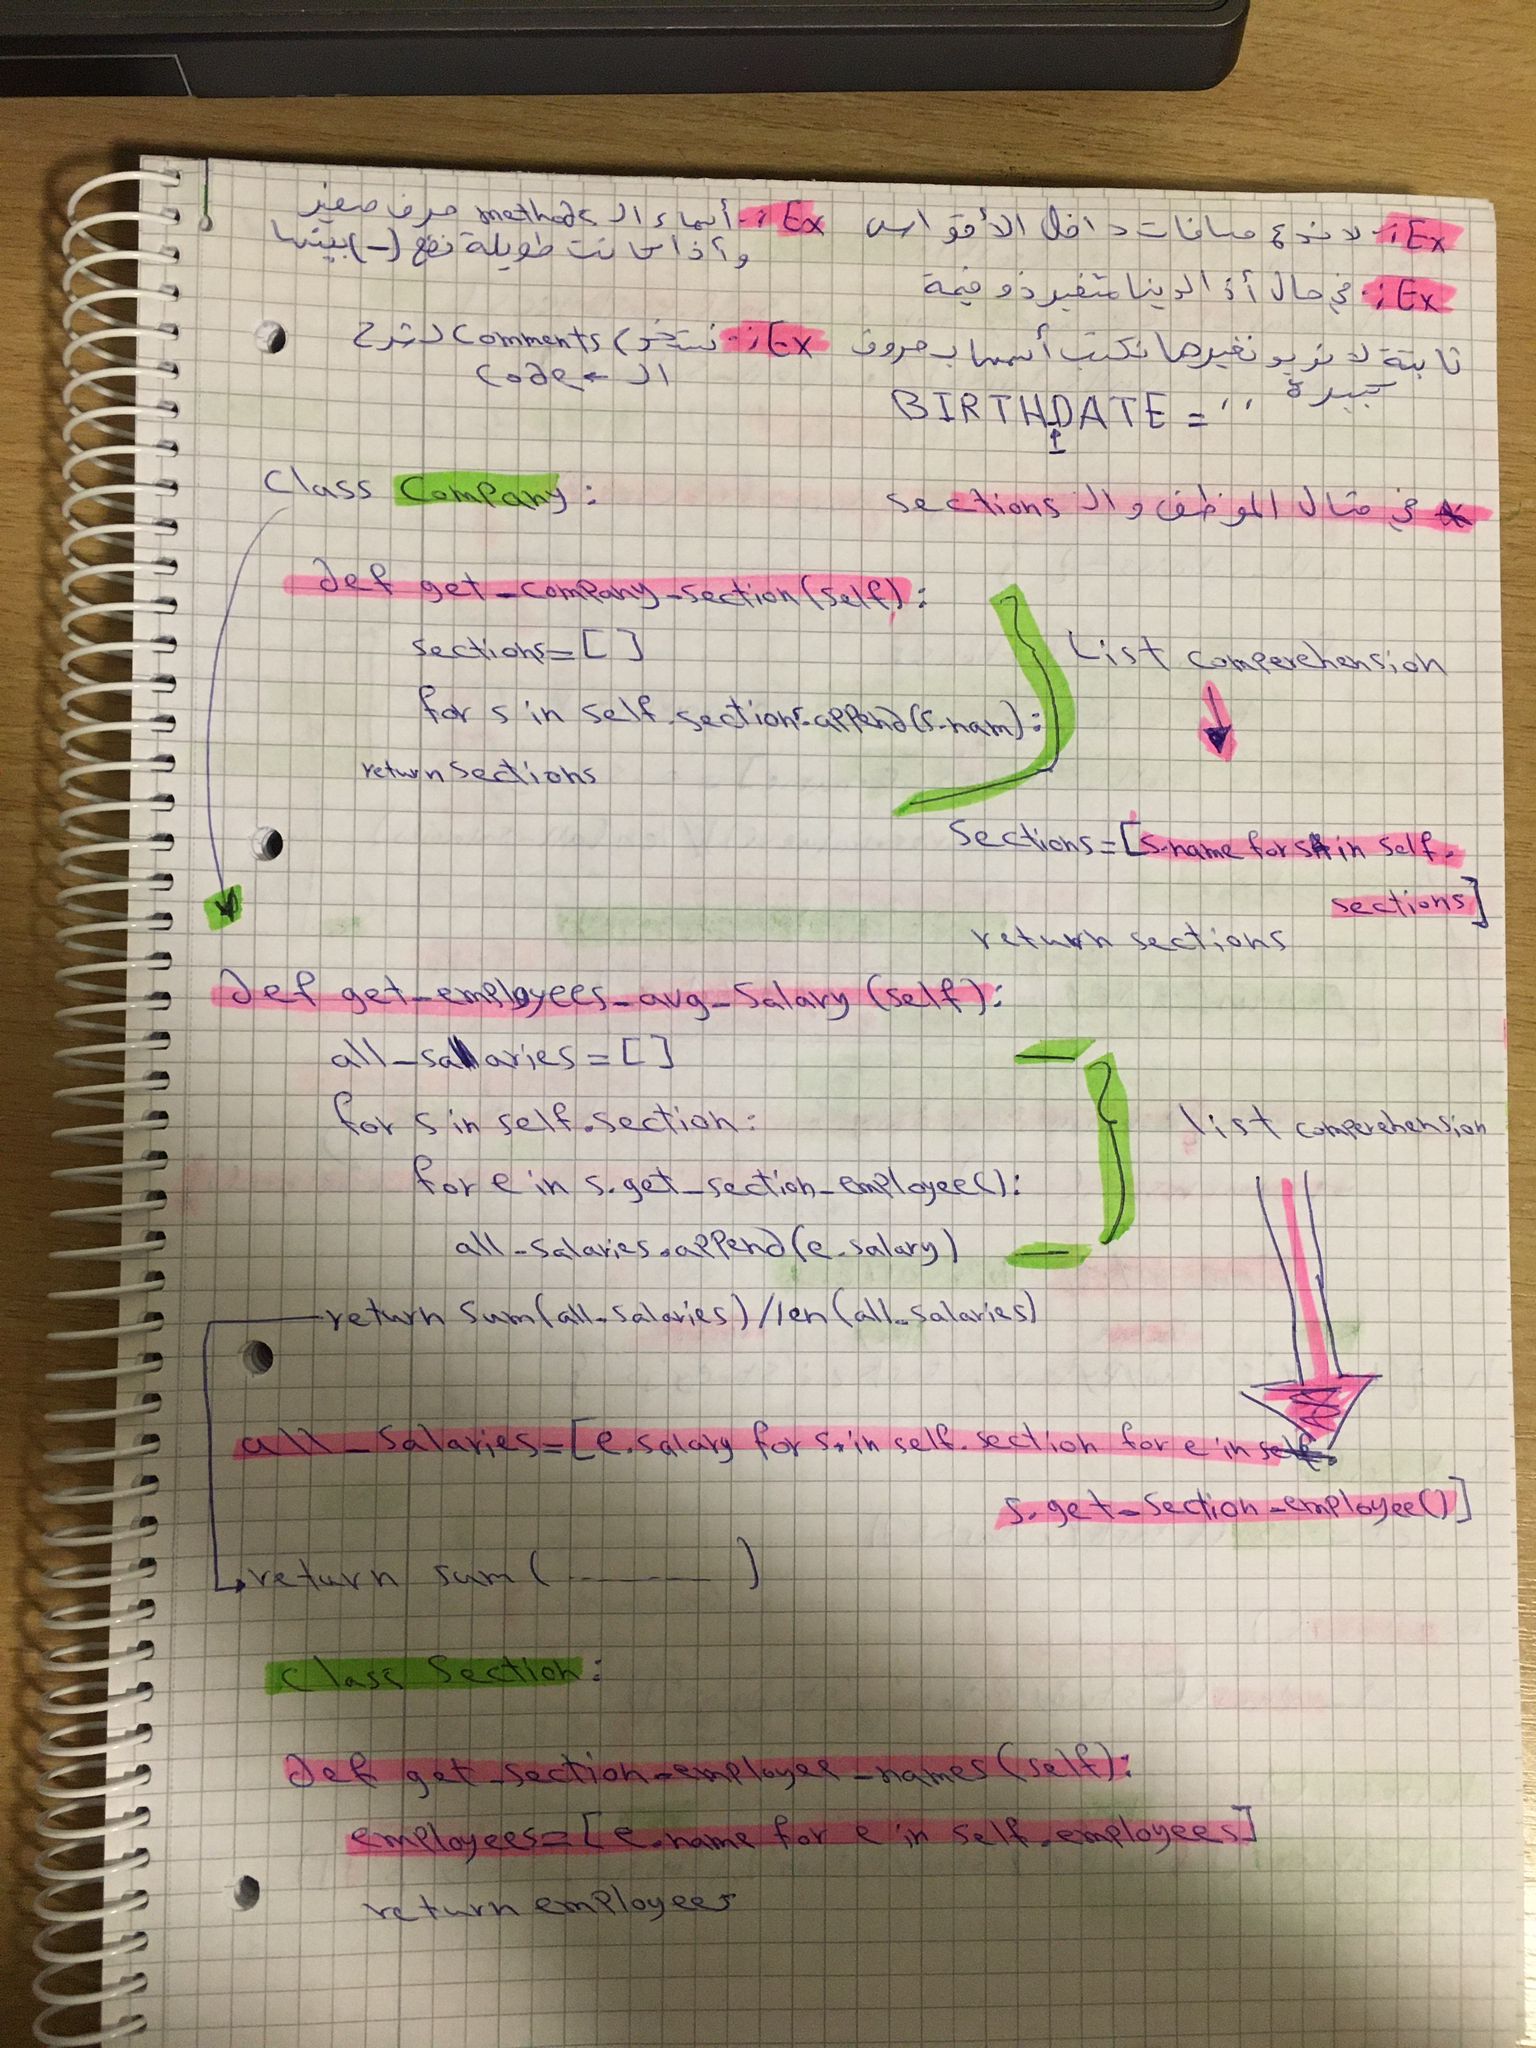 Ex :- لا ندع مسافات داخل الأقواس
Ex :- أسماء الـ methods حرف صغير
وأذا كانت طويلة نضع (_) بينها
Ex :- في حال أن لدينا متغير ذو قيمة
ثابتة لا نريد تغيرها نكتب أسمها بحروف
كبيرة
BIRTHDATE = ''
Ex :- نستخدم comments لشرح
الـ code ←
* في مثال الموظف والـ sections
Class Company:
def get_company_section(self):
sections=[]
for s in self.sections.append(s.nam):
return sections
List comperehension
Sections=[s.name for s in self.
sections]
return sections
def get_employees_avg_salary(self):
all_salaries=[]
for s in self.section:
for e in s.get_section_employee():
all_salaries.append(e.salary)
return sum(all_salaries)/len(all_salaries)
list comperehension
all_salaries=[e.salary for s in self.section for e in self.
s.get_section_employee()]
return sum( ------ )
Class Section:
def get_section_employee_names(self):
employees=[e.name for e in self.employees]
return employees